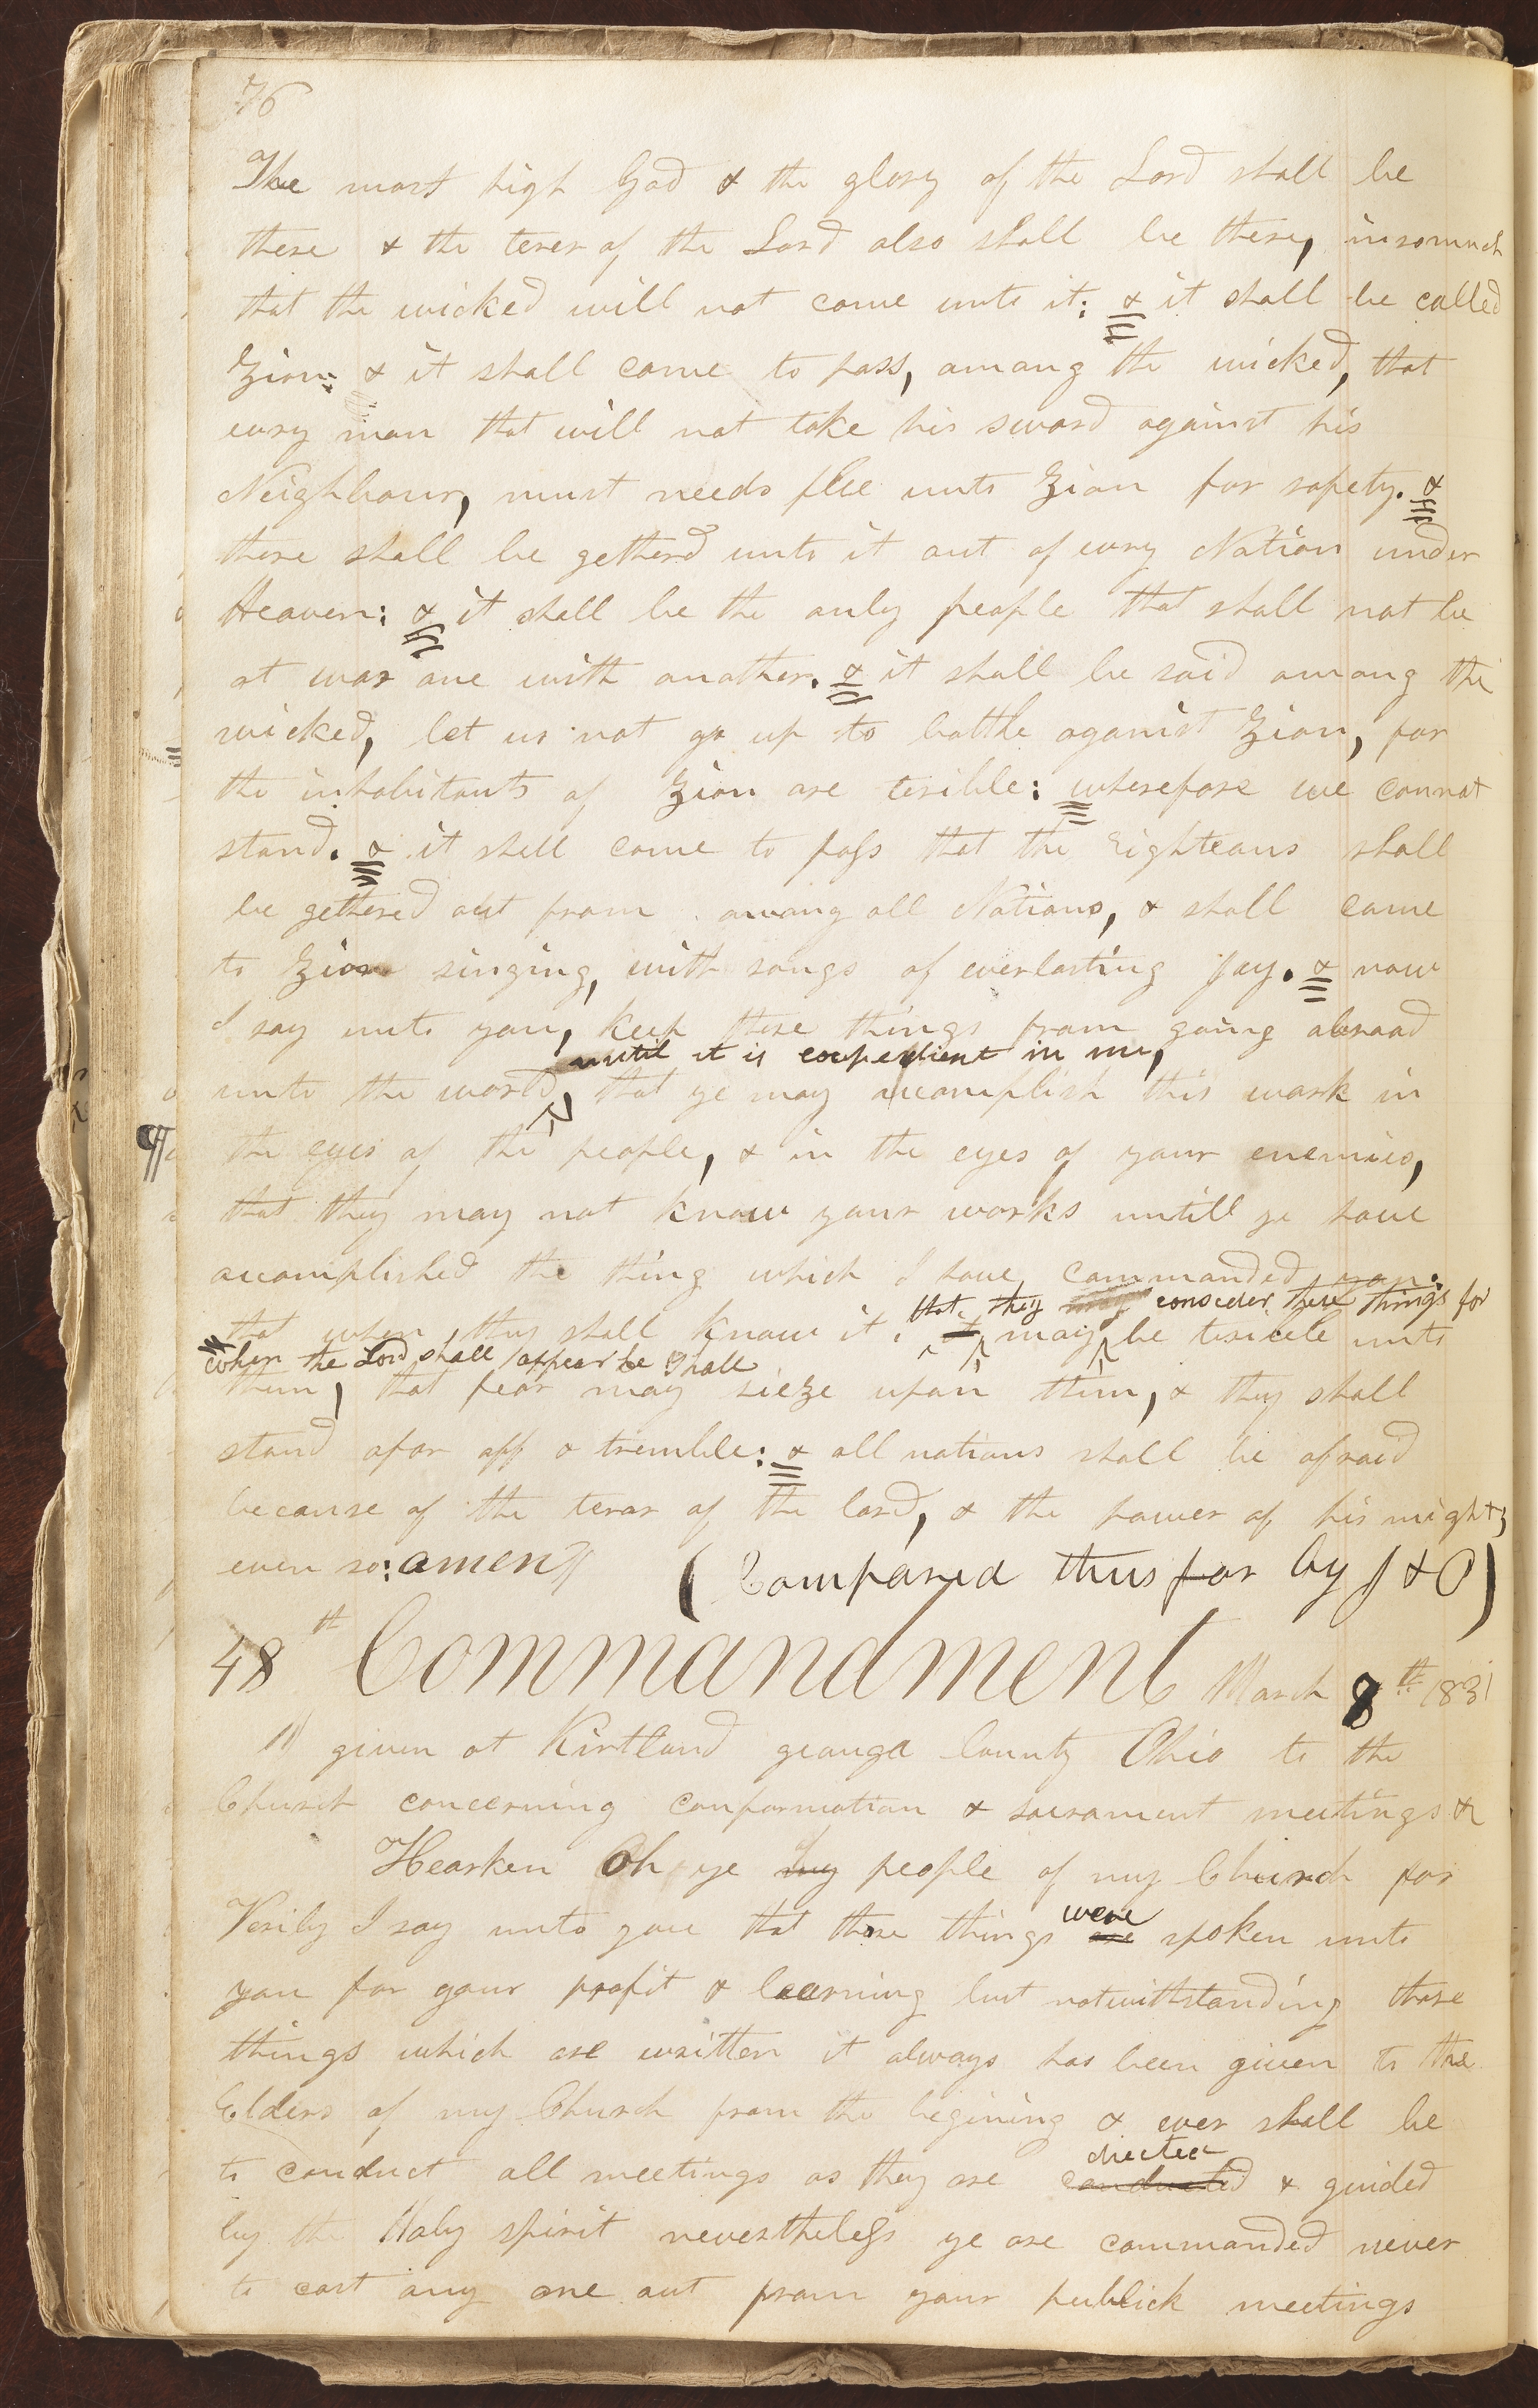 76
The most high God & the glory of the Lord shall be
there & the terer of the Lord also shall be there, insomuch
that the wicked will not come unto it: & it shall be called
Zion: & it shall come to pass, among the wicked, that
evry man that will not take his sword against his
Neighbour, must needs flee unto Zion for safety. &
there shall be getherd unto it out of evry Nation under
Heaven: & it shall be the only people that shall not be
at war one with another. & it shall be said among the
wicked, let us not go up to battle against Zion, for
the inhabitants of Zion are terible: wherefore we cannot
stand. & it shall come to pass that the righteous shall
be gethered out from among all Nations, & shall come
to Zion singing, with songs of everlasting Joy. & now
I say unto you, keep these things from going abroad
until it is expedient in me,
unto the world, that ye may accomplish this work in
¶ the eyes of the people, & in the eyes of your enemies,
that they may not know your works untill ye have
accomplished the thing which I have commanded you:
that they may consider these things for
that when they shall know it, it may be terible unto
when the Lord shall appear he shall
them, that fear may sieze upon them, & they shall
stand afar off & tremble: & all nations shall be afraid
because of the teror of the lord, & the power of his might,
even so: amen (Compared thus far by J & O)
48th Commandment March 8th 1831
given at Kirtland geauga County Ohio to the
Church concerning conformation & sacrament meetings &c
Hearken Oh ye my people of my Church for
Verily I say unto you that these things were are spoken unto
you for your profit & learning but notwithstanding those
things which are written it always has been given to the
Elders of my Church from the begining & ever shall be
directed
to conduct all meetings as they are conducted & guided
by the Holy spirit nevertheless ye are commanded never
to cast any one out from your publick meetings